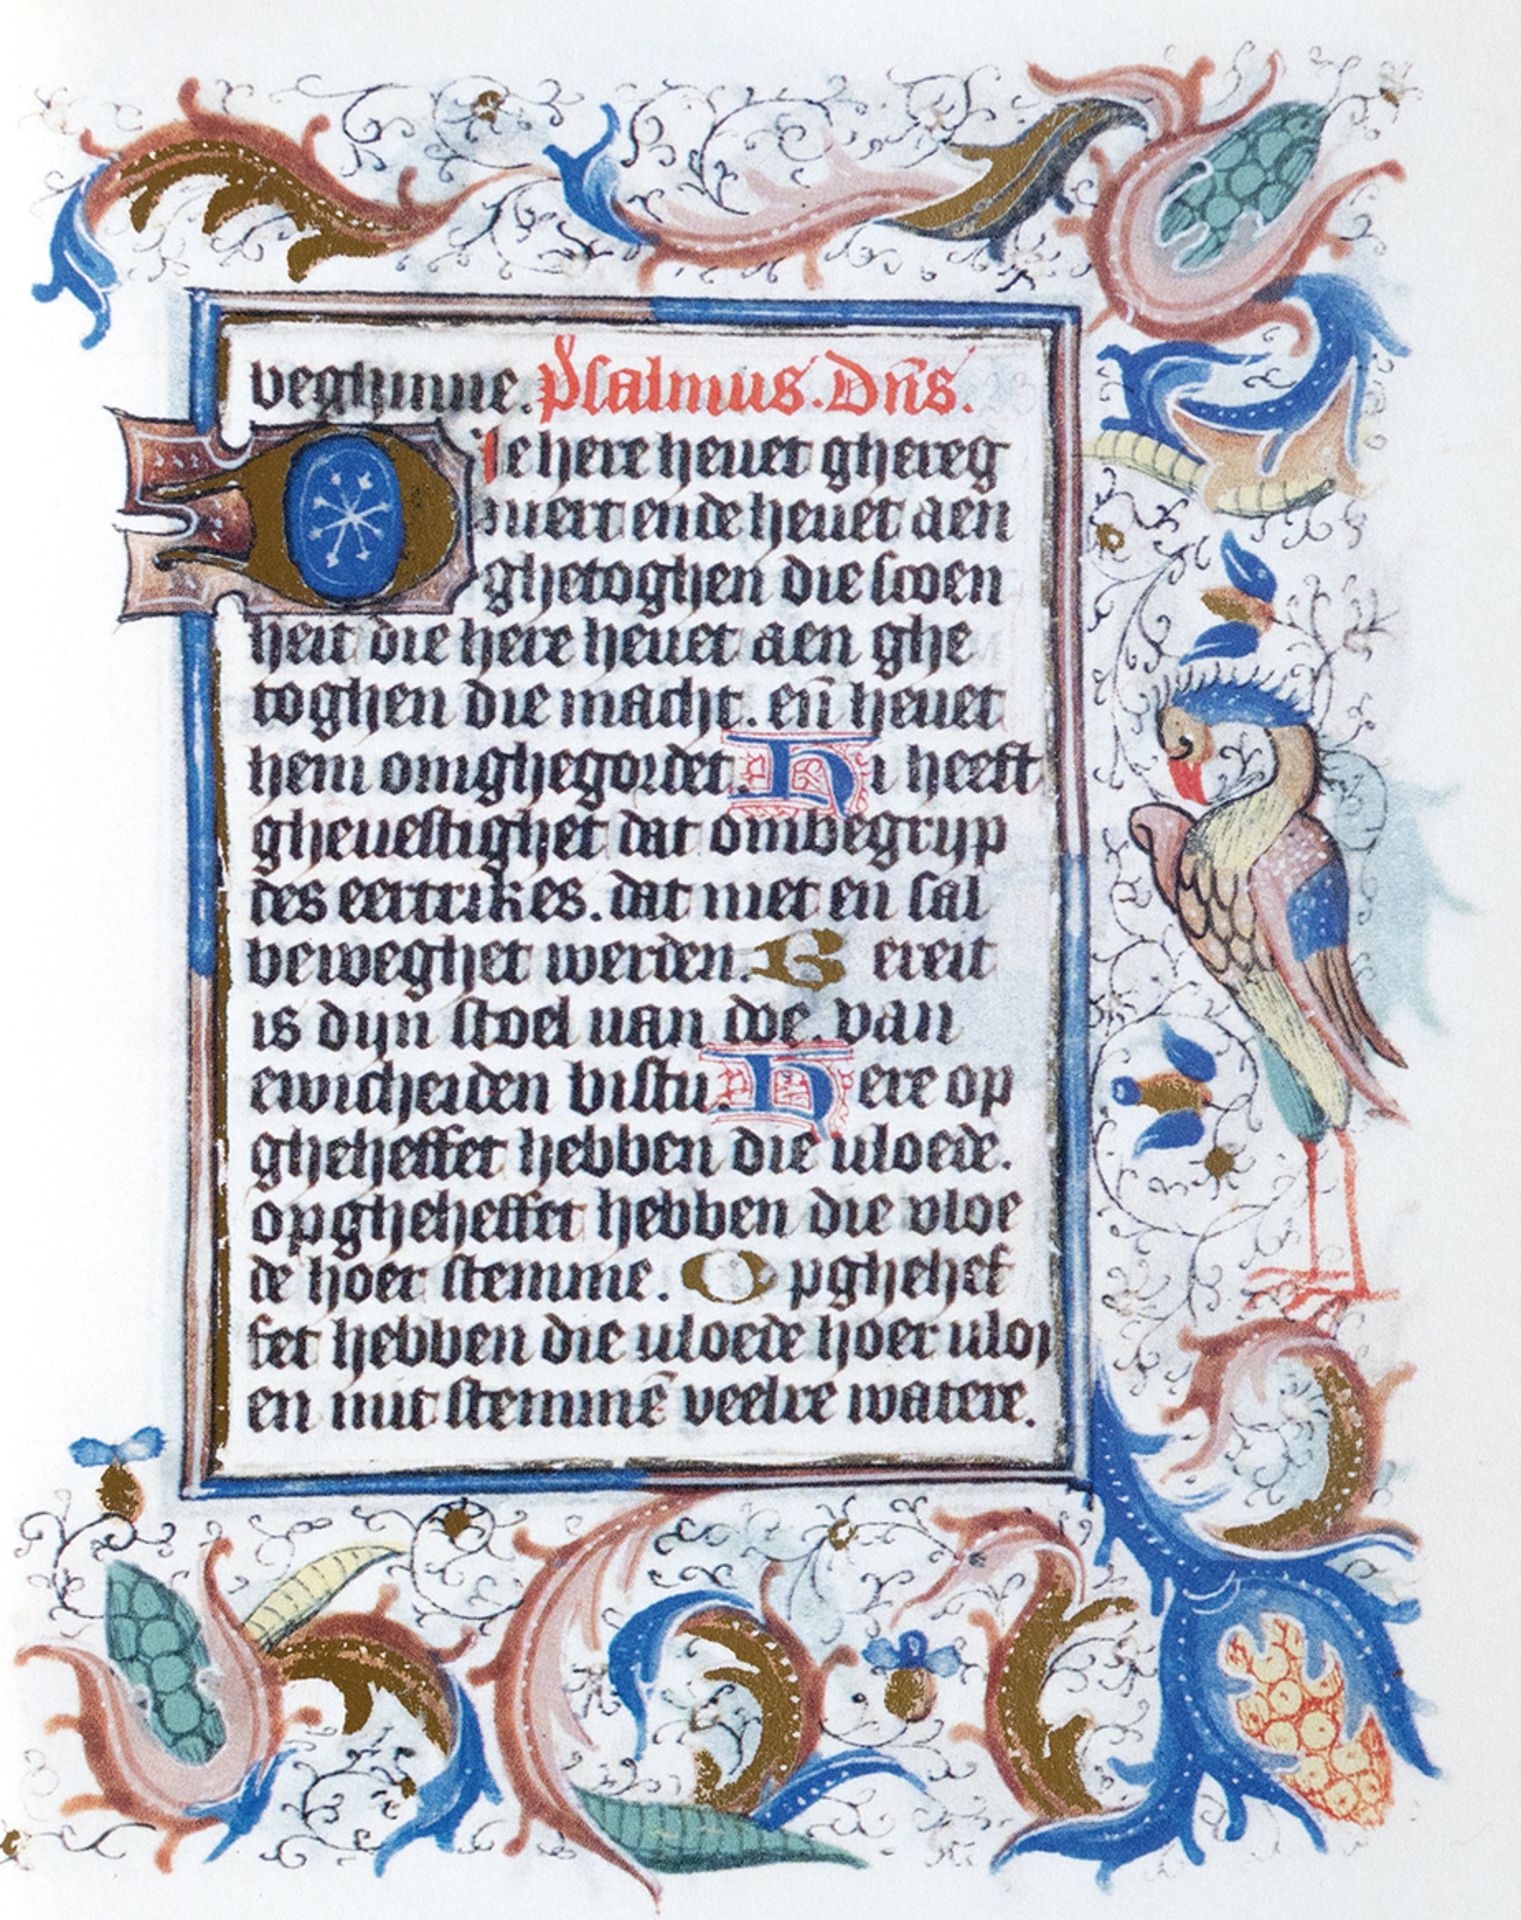 beghinne. Psalmus. Dn̄s.
Die here heuet ghereg
nert ende heuet aen
ghetoghen die scoen
heit die here heuet aen ghe
toghen die macht. en̄ heuet
hem omghegordet. Hi heeft
gheuestighet dat ombegrijp
des eertrikes. dat niet en sal
beweghet werden. Bereit
is dijn stoel uan doe. van
ewicheiden bistu. Here op
gheheffet hebben die uloede.
opgheheffet hebben die vloe
de hoer stemme. Opghehef
fet hebben die uloede hoer uloy
en mit stemmē veelre watere.